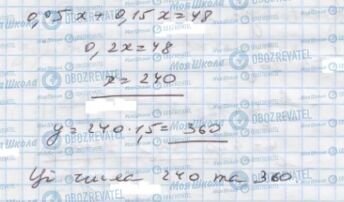 0,05x + 0,15x = 48
0,2x = 48
x = 240
y = 240 · 1,5 = 360
Ці числа 240 та 360.
Моя Школа
OBOZREVATEL